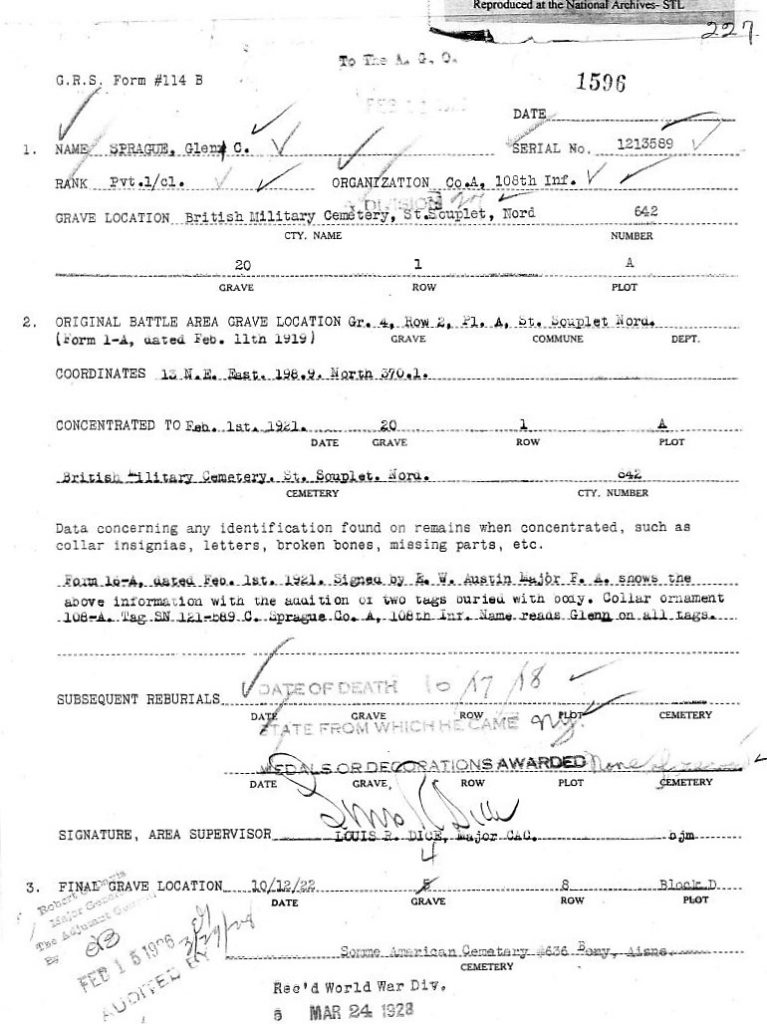 Reproduced at the National Archives- STL
227
To The A. G. O.
G.R.S. Form #114 B
1596
FEB
DATE
1. NAME SPRAGUE, Glenn C. SERIAL No. 1213589
RANK Pvt.1/cl. ORGANIZATION Co.A, 108th Inf.
DIVISION 27
GRAVE LOCATION British Military Cemetery, St.Souplet, Nord 642
CTY. NAME NUMBER
20 1 A
GRAVE ROW PLOT
2. ORIGINAL BATTLE AREA GRAVE LOCATION Gr. 4, Row 2, Pl. A, St. Souplet Nord.
(Form 1-A, dated Feb. 11th 1919) GRAVE COMMUNE DEPT.
COORDINATES 13 N.E. East. 198.9. North 370.1.
CONCENTRATED TO Feb. 1st. 1921. 20 1 A
DATE GRAVE ROW PLOT
British Military Cemetery. St. Souplet. Nord. 642
CEMETERY CTY. NUMBER
Data concerning any identification found on remains when concentrated, such as
collar insignias, letters, broken bones, missing parts, etc.
Form 16-A, dated Feb. 1st. 1921. Signed by E. W. Austin Major F. A. shows the
above information with the addition of two tags buried with body. Collar ornament
108-A. Tag SN 121-589 C. Sprague Co. A, 108th Inf. Name reads Glenn on all tags.
DATE OF DEATH 10/17/18
SUBSEQUENT REBURIALS
DATE GRAVE ROW PLOT CEMETERY
STATE FROM WHICH HE CAME NY.
MEDALS OR DECORATIONS AWARDED None of record
DATE GRAVE, ROW PLOT CEMETERY
Louis R Dice
SIGNATURE, AREA SUPERVISOR LOUIS R. DICE, Major CAC. bjm
4
3. FINAL GRAVE LOCATION 10/12/22 5 8 Block D
DATE GRAVE ROW PLOT
Robert C. Davis
Major General
The Adjutant General
By
FEB 15 1926
AUDITED BY
3/29/28
Somme American Cemetery #636 Bony, Aisne.
CEMETERY
Rec'd World War Div.
5 MAR 24 1928